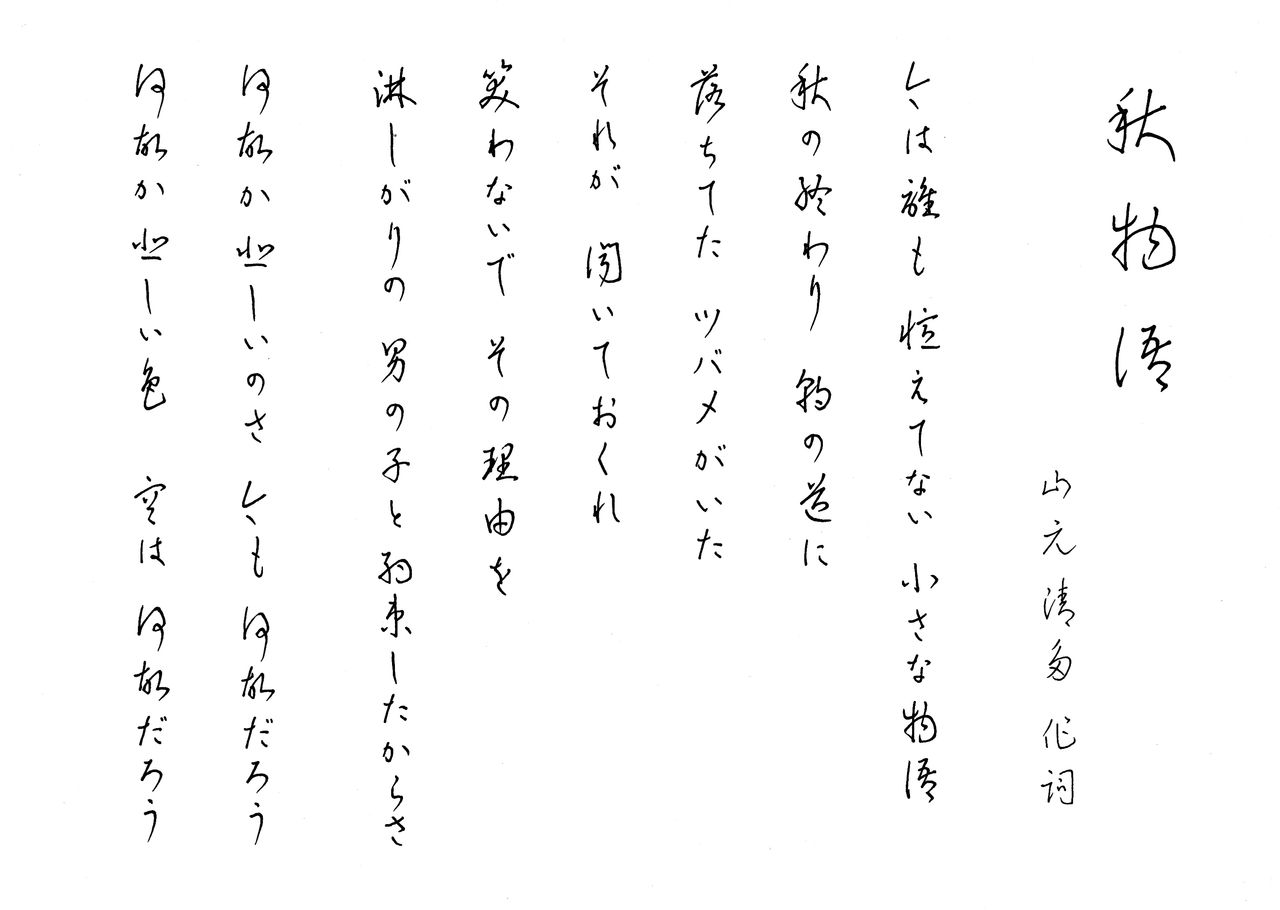 秋物語
山元清多 作詞
今は誰も憶えてない 小さな物語
秋の終わり 朝の道に
落ちてた ツバメがいた
それが 聞いておくれ
笑わないで その理由を
淋しがりの 男の子と約束したからさ
何故か 悲しいのさ 今も 何故だろう
何故か 悲しい色 空は 何故だろう